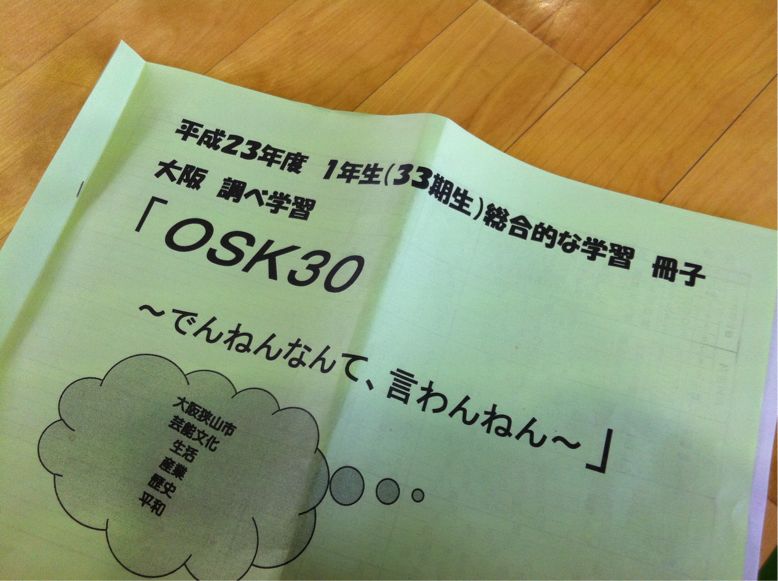 平成23年度 1年生(33期生)総合的な学習 冊子
大阪 調べ学習
「OSK30
～でんねんなんて、言わんねん～」
大阪狭山市
芸能文化
生活
産業
歴史
平和